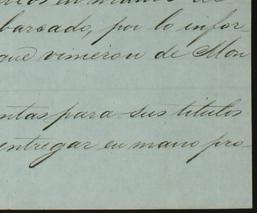 barcado, por lo infor-
que vimeron de Mon
ntas para sus titulos
entregar en mano pro-